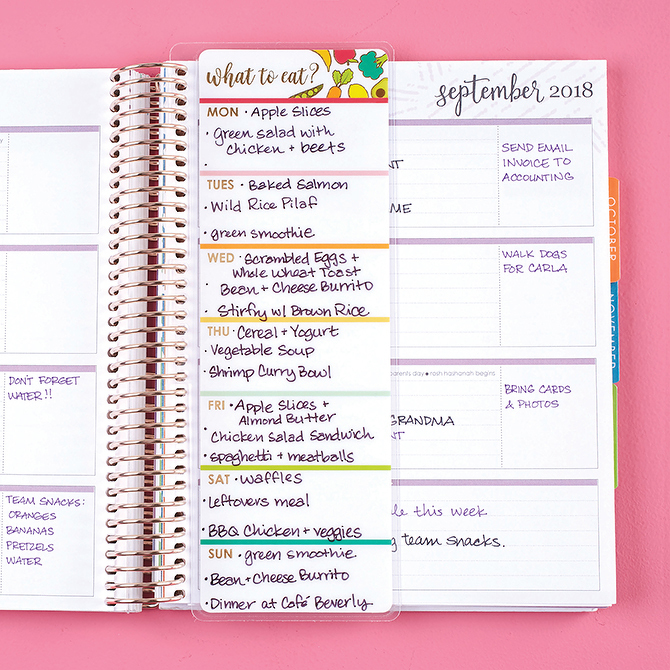 DON'T FORGET
WATER!!
TEAM SNACKS:
ORANGES
BANANAS
PRETZELS
WATER
what to eat?
MON • Apple Slices
• Green salad with
Chicken + beets
•
TUES • Baked Salmon
• Wild Rice Pilaf
• green smoothie
WED • Scrambled Eggs +
Whole Wheat Toast
• Bean + Cheese Burrito
• Stirfry w/ Brown Rice
THU • Cereal + Yogurt
• Vegetable Soup
• Shrimp Curry Bowl
FRI • Apple Slices +
Almond Butter
• Chicken Salad Sandwich
• spaghetti + meatballs
SAT • waffles
• Leftovers meal
• BBQ Chicken + veggies
SUN • green smoothie
• Bean + Cheese Burrito
• Dinner at Café Beverly
september 2018
SEND EMAIL
INVOICE TO
ACCOUNTING
WALK DOGS
FOR CARLA
day • rosh hashanah begins
BRING CARDS
& PHOTOS
GRANDMA
this week
team snacks.
OCTOBER
NOVEMBER